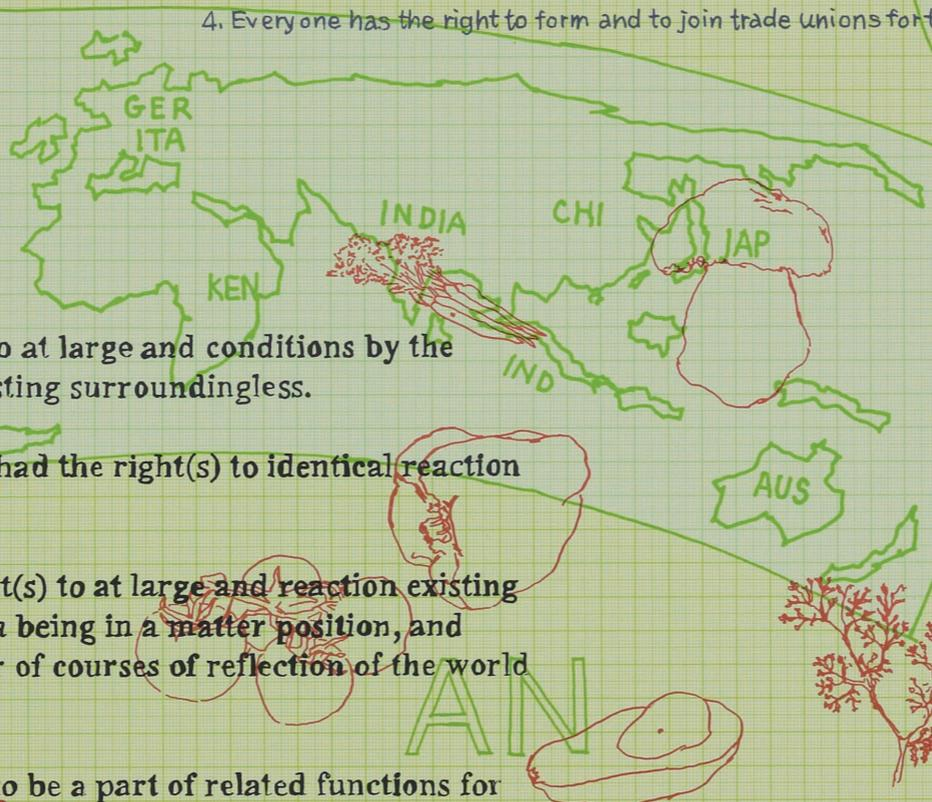 4. Everyone has the right to form and to join trade unions for
GER
ITA
INDIA
CHI
JAP
KEN
at large and conditions by the
surroundingless.
IND
had the right(s) to identical reaction
AUS
to at large and reaction existing
being in a matter position, and
of courses of reflection of the world
AN
be a part of related functions for